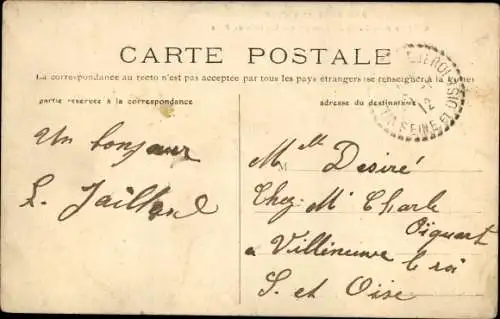 CARTE POSTALE
La correspondance au recto n'est pas acceptée par tous les pays étrangers (se renseigner à la
partie réservée à la correspondance
adresse du destinataire
SEINE ET OISE
Un bonjour
Mlle Desiré
Chez Mr Charle
à Villeneuve le roi
S. et Oise